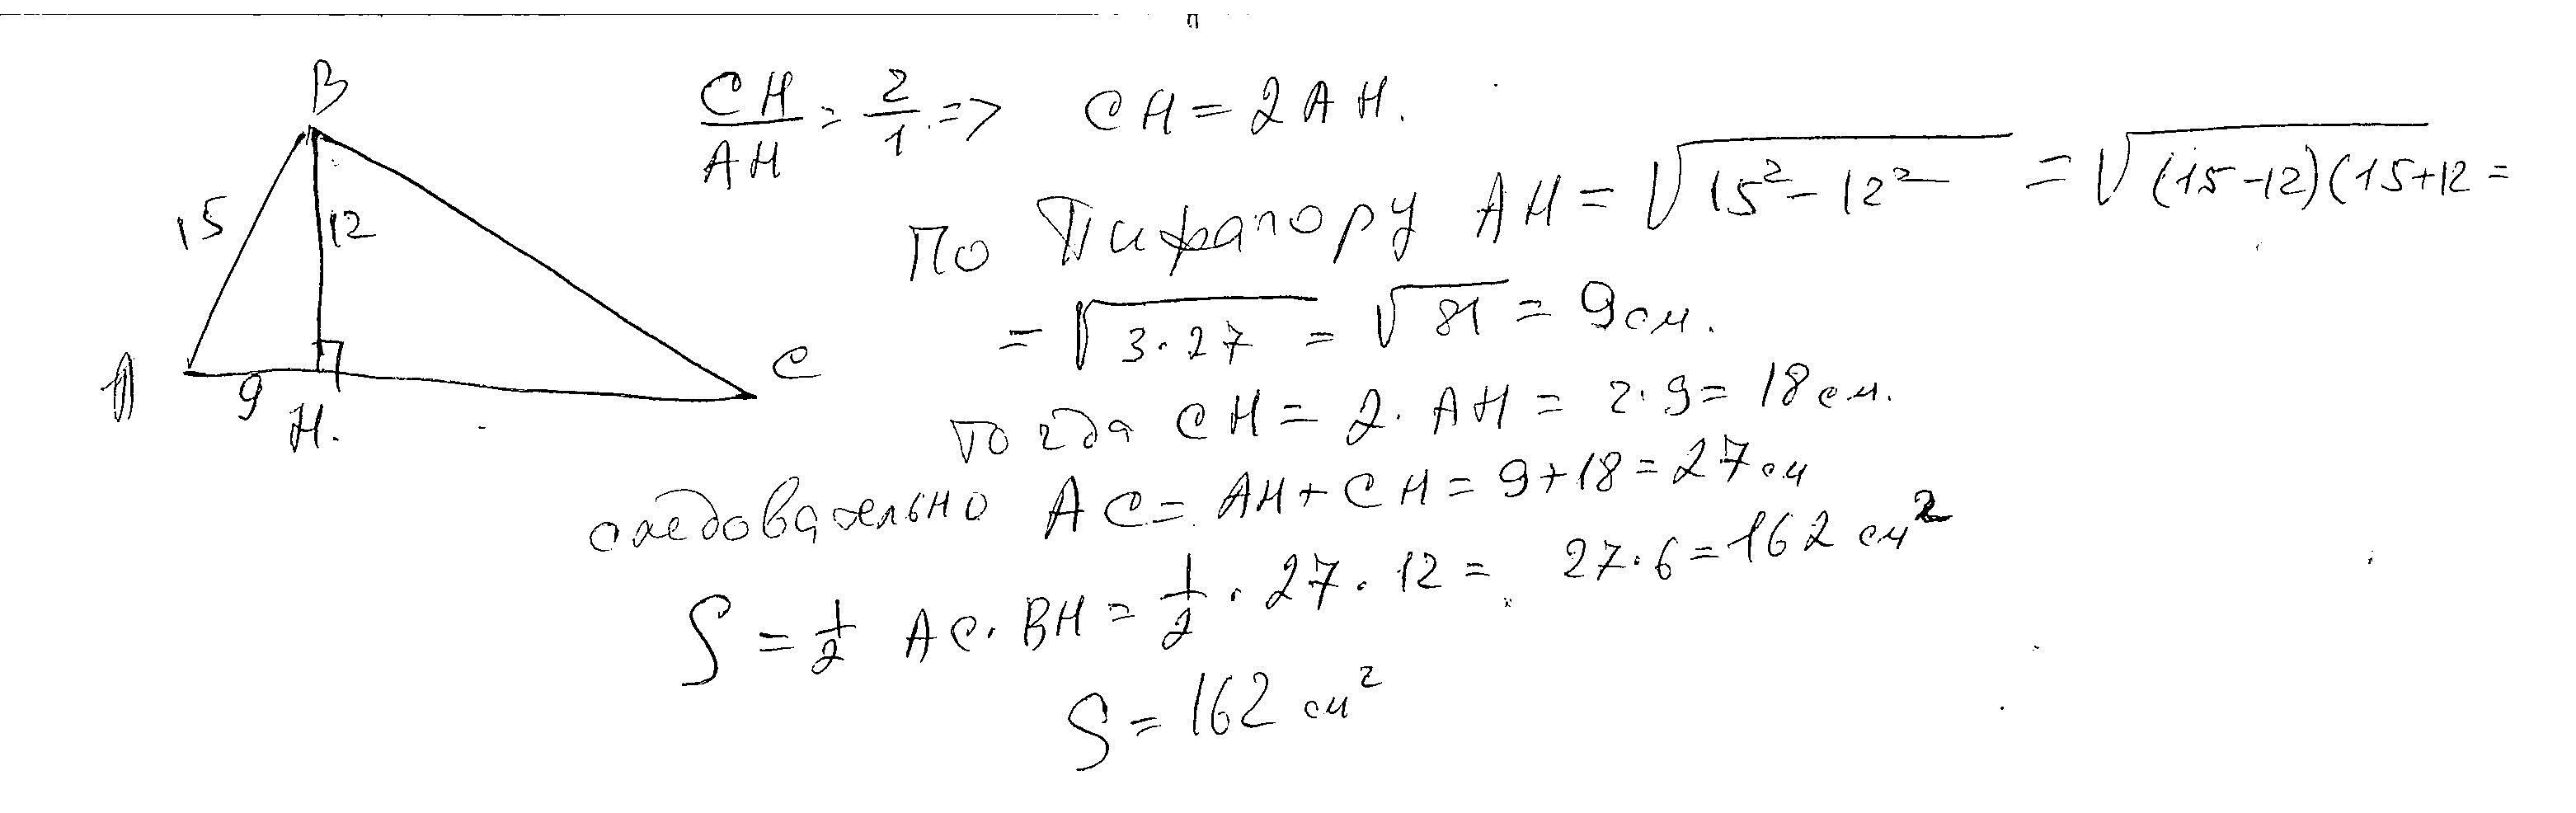 B
15
12
A
9
H.
C
CH/AH = 2/1 => CH = 2AH.
По Пифагору AH = √(15² - 12²) = √(15-12)(15+12 =
= √(3·27) = √81 = 9 см.
тогда CH = 2·AH = 2·9 = 18 см.
следовательно AC = AH + CH = 9 + 18 = 27 см
S = 1/2 AC·BH = 1/2 · 27 · 12 = 27·6 = 162 см²
S = 162 см²